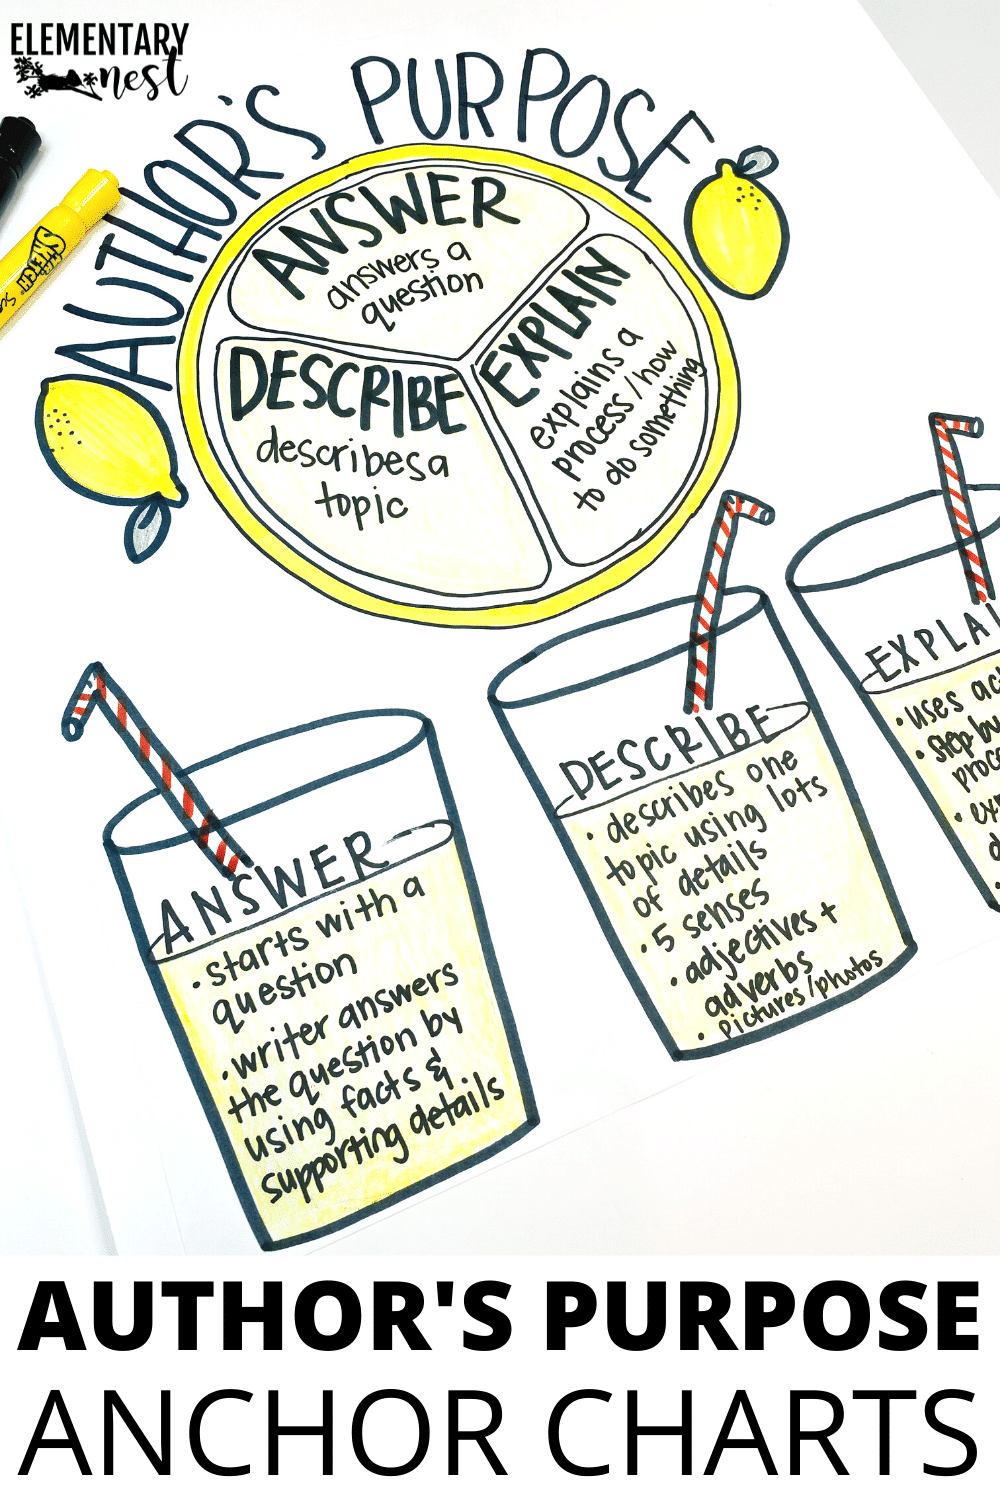 ELEMENTARY
nest
AUTHOR'S PURPOSE
ANSWER
answers a
question
EXPLAIN
explains a
process/how
to do something
DESCRIBE
describes a
topic
ANSWER
• starts with a
question
• writer answers
the question by
using facts &
supporting details
DESCRIBE
• describes one
topic using lots
of details
• 5 senses
• adjectives +
adverbs
• pictures/photos
• uses
• step by
AUTHOR'S PURPOSE
ANCHOR CHARTS